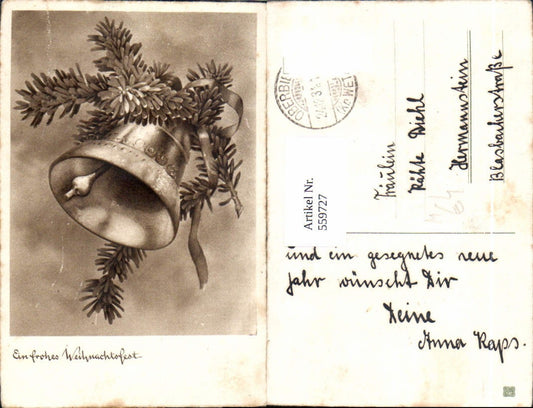 Ein frohes Weihnachtsfest
Fräulein
Käthe Diehl
Hermannstein
Blasbacherstraße
Artikel Nr.
559727
und ein gesegnetes neue
Jahr wünscht Dir
Deine
Anna Kaps.